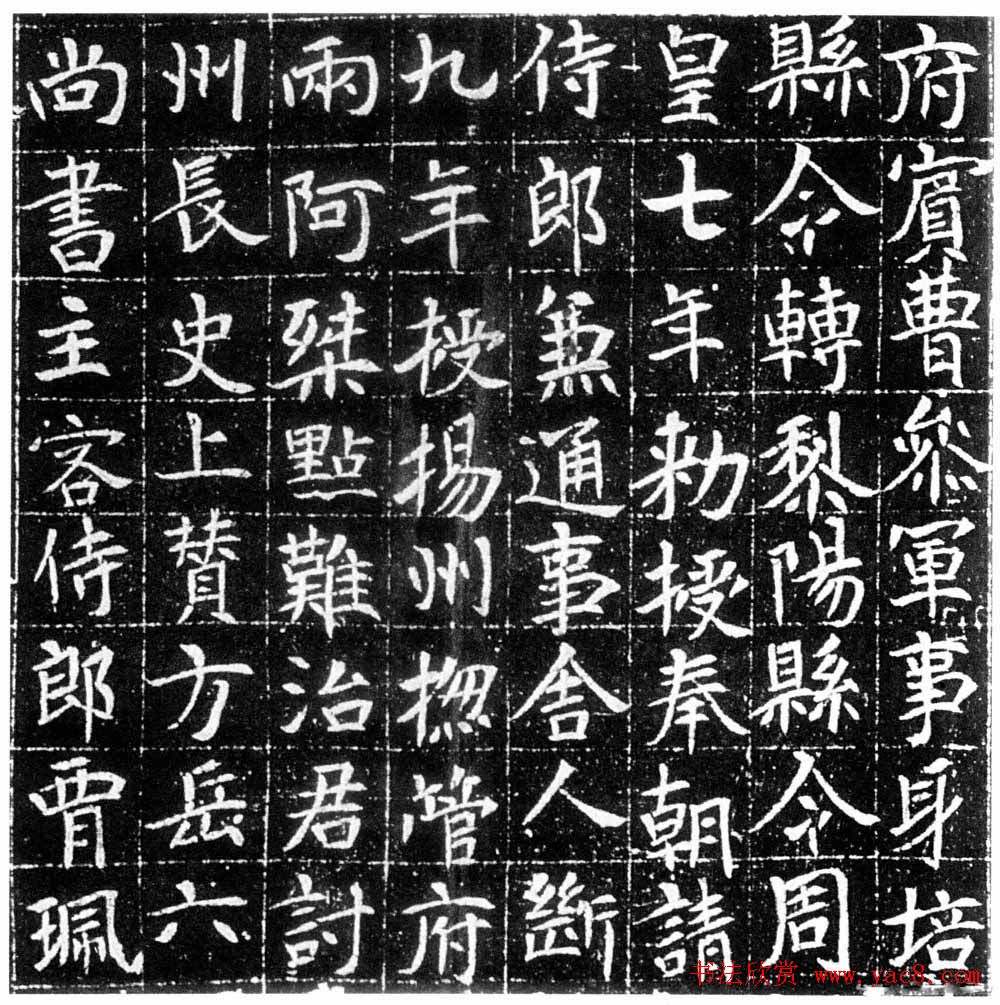 府賓曹參軍事身培
縣令轉黎陽縣令周
皇七年勑授奉朝請
侍郎兼通事舍人斷
九年授揚州捴管府
兩阿桀點難治君討
州長史上贊方岳六
尚書主客侍郎賈珮
书法欣赏 www.yac8.com